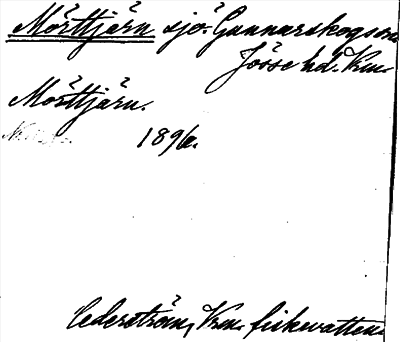 Mörttjärn sjö. Gunnarskogs sn.
Jösse hd. Vrm.
Mörttjärn.
1896.
Cederström, Vrm. fiskevatten